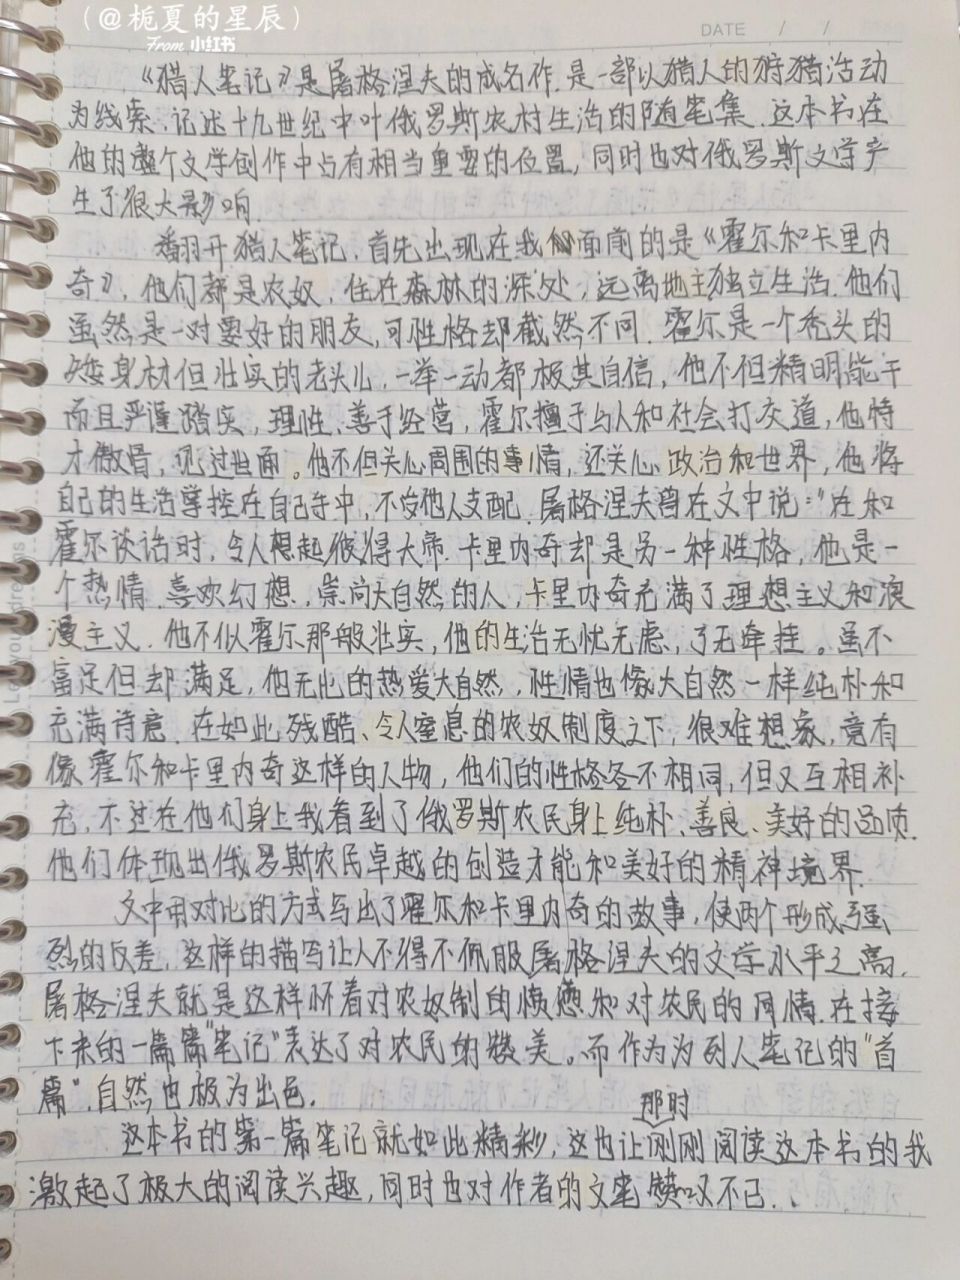 （@栀夏的星辰）
From 小红书
DATE / /
《猎人笔记》是屠格涅夫的成名作.是一部以猎人的狩猎活动
为线索.记述十九世纪中叶俄罗斯农村生活的随笔集.这本书在
他的整个文学创作中占有相当重要的位置,同时也对俄罗斯文学产
生了很大影响.
翻开猎人笔记.首先出现在我们面前的是《霍尔和卡里内
奇》,他们都是农奴,住在森林的深处,远离地主独立生活.他们
虽然是一对要好的朋友,可性格却截然不同.霍尔是一个秃头的
矮身材但壮实的老头儿.一举一动都极其自信,他不但精明能干
而且严谨踏实,理性、善于经营,霍尔擅于与人和社会打交道,他恃
才傲骨,见过世面。他不但关心周围的事情,还关心政治和世界,他将
自己的生活掌控在自己手中,不受他人支配.屠格涅夫曾在文中说:"在和
霍尔谈话时,令人想起彼得大帝.卡里内奇却是另一种性格,他是一
个热情.喜欢幻想,崇尚大自然的人,卡里内奇充满了理想主义和浪
漫主义.他不似霍尔那般壮实,他的生活无忧无虑,了无牵挂。虽不
富足但却满足,他无比的热爱大自然,性情也像大自然一样纯朴和
充满诗意.在如此残酷、令人窒息的农奴制度之下,很难想象,竟有
像霍尔和卡里内奇这样的人物,他们的性格各不相同,但又互相补
充,不过在他们身上我看到了俄罗斯农民身上纯朴、善良、美好的品质.
他们体现出俄罗斯农民卓越的创造才能和美好的精神境界.
文中用对比的方式写出了霍尔和卡里内奇的故事,使两个形成强
烈的反差,这样的描写让人不得不佩服屠格涅夫的文学水平之高.
屠格涅夫就是这样怀着对农奴制的愤懑和对农民的同情.在接
下来的一篇篇"笔记"表达了对农民的赞美。而作为为列人笔记的"首
篇".自然也极为出色.
那时
这本书的第一篇笔记就如此精彩,这也让刚刚阅读这本书的我
激起了极大的阅读兴趣,同时也对作者的文笔赞叹不已..